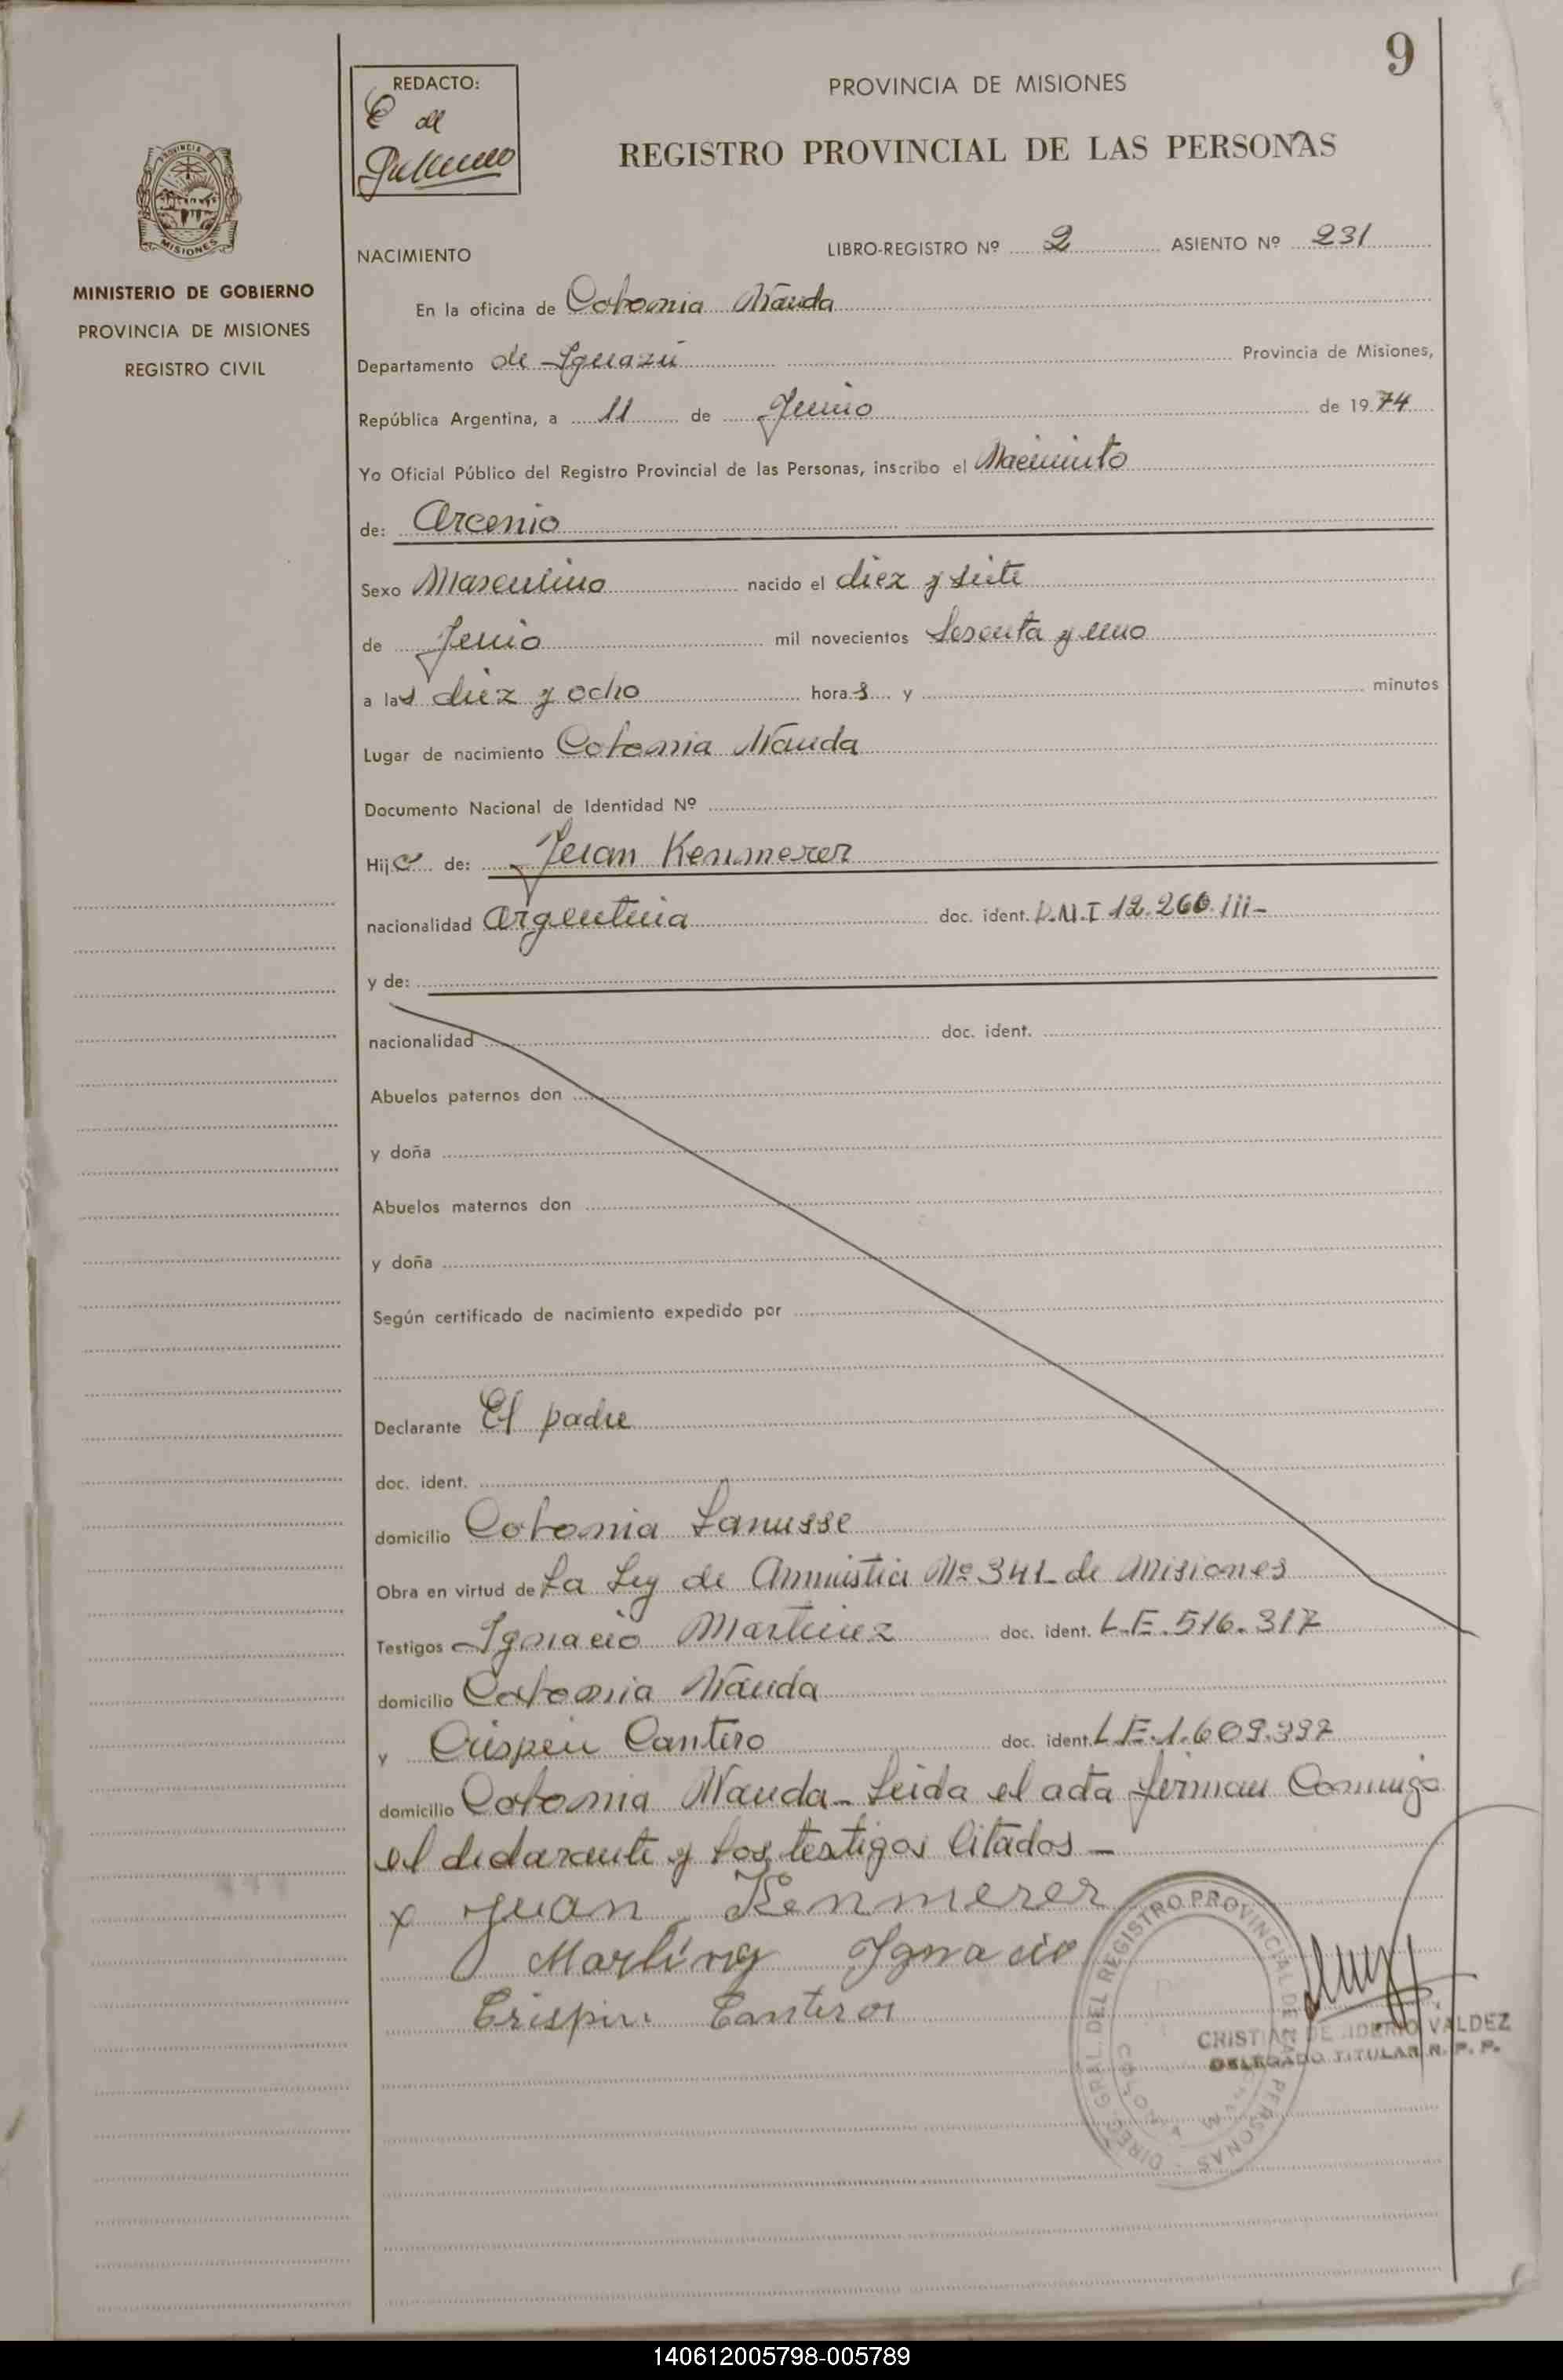 9
REDACTO:
C de
PROVINCIA DE MISIONES
REGISTRO PROVINCIAL DE LAS PERSONAS
PROVINCIA
MISIONES
MINISTERIO DE GOBIERNO
PROVINCIA DE MISIONES
REGISTRO CIVIL
NACIMIENTO
LIBRO-REGISTRO Nº 2 ASIENTO Nº 231
En la oficina de Colonia Wanda
Departamento de Iguazú Provincia de Misiones,
República Argentina, a 11 de Junio de 1974
Yo Oficial Público del Registro Provincial de las Personas, inscribo el Nacimiento
de: Arcenio
Sexo Masculino nacido el diez y siete
de Junio mil novecientos Sesenta y uno
a las diez y ocho horas y minutos
Lugar de nacimiento Colonia Wanda
Documento Nacional de Identidad Nº
Hijo de: Juan Kenmerer
nacionalidad Argentina doc. ident. D.N.I 12.260.111-
y de:
nacionalidad doc. ident.
Abuelos paternos don
y doña
Abuelos maternos don
y doña
Según certificado de nacimiento expedido por
Declarante El padre
doc. ident.
domicilio Colonia Lanusse
Obra en virtud de La Ley de Amnistia Nº 341 - de Misiones
Testigos Ignacio Martinez doc. ident. L.E. 516.317
domicilio Colonia Wanda
y Crispin Cantero doc. ident. L.E. 1.609.397
domicilio Colonia Wanda - Leida el acta firman Conmigo
el declarante y los testigos Citados -
x Juan Kenmerer
Ignacio
Crispin Canteros
DIREC. GRAL. DEL REGISTRO PROVINCIAL DE LAS PERSONAS
CRISTIAN DESIDERIO VALDEZ
DELEGADO TITULAR R. P. P.
140612005798-005789